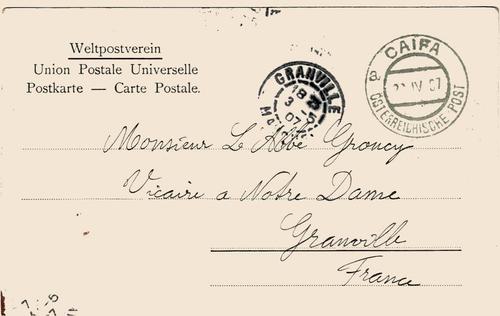 Weltpostverein
Union Postale Universelle
Postkarte — Carte Postale.
GRANVILLE
18
3 -5
07
CAIFA
a
IV 07
ÖSTERREICHISCHE POST
Monsieur L'Abbé Groucy
Vicaire a Notre Dame
Granville
France